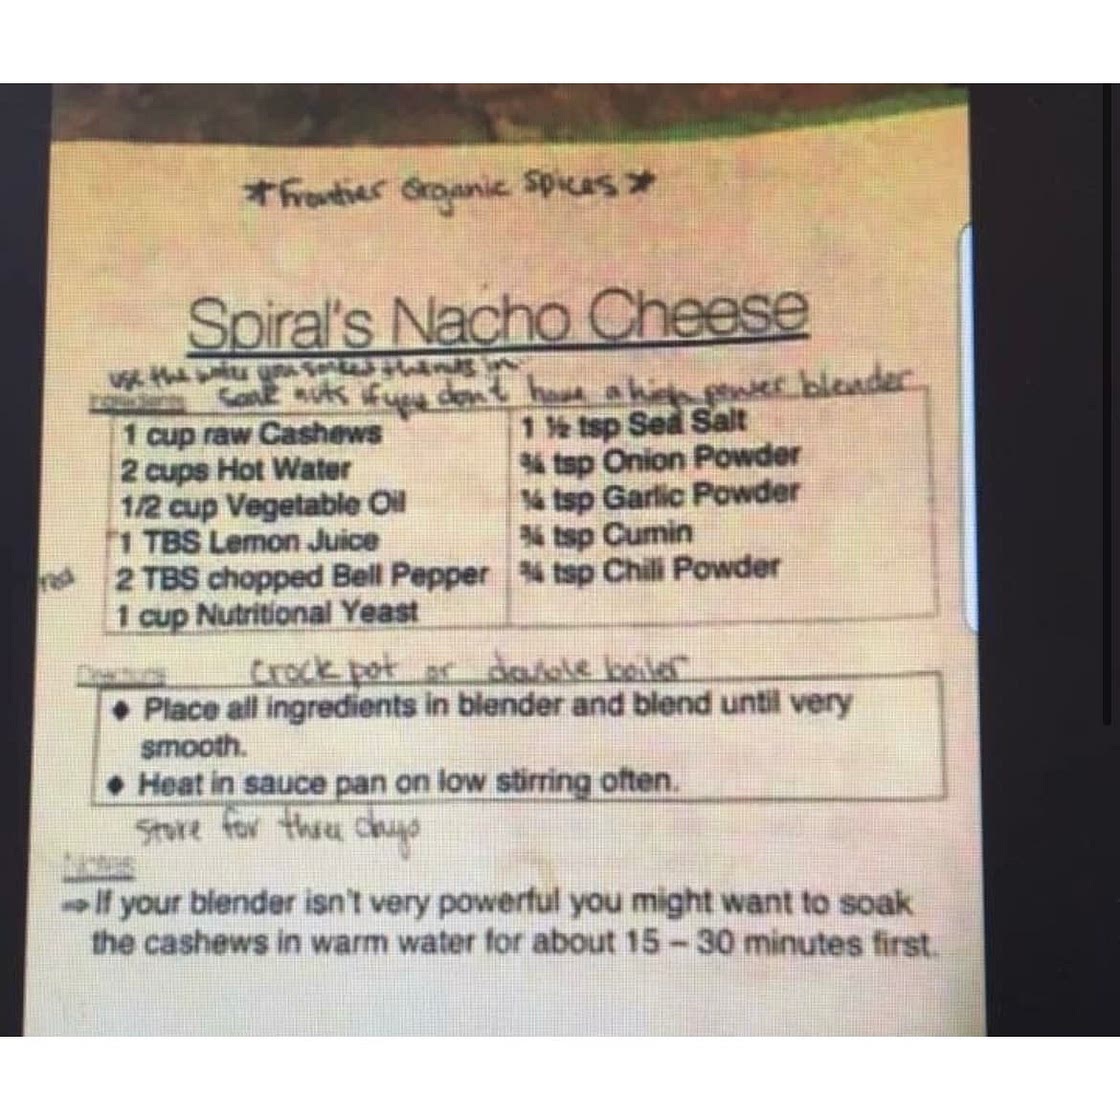 *Frontier Organic Spices*
Spiral's Nacho Cheese
use the water you soaked them in.
soak nuts if you don't have a high power blender
Ingredients
1 cup raw Cashews
2 cups Hot Water
1/2 cup Vegetable Oil
1 TBS Lemon Juice
red 2 TBS chopped Bell Pepper
1 cup Nutritional Yeast
1 ½ tsp Sea Salt
¾ tsp Onion Powder
¼ tsp Garlic Powder
¾ tsp Cumin
¾ tsp Chili Powder
Directions
Crock pot or double boiler
♦ Place all ingredients in blender and blend until very
smooth.
♦ Heat in sauce pan on low stirring often.
Store for three days
Notes
⇒ If your blender isn't very powerful you might want to soak
the cashews in warm water for about 15 – 30 minutes first.